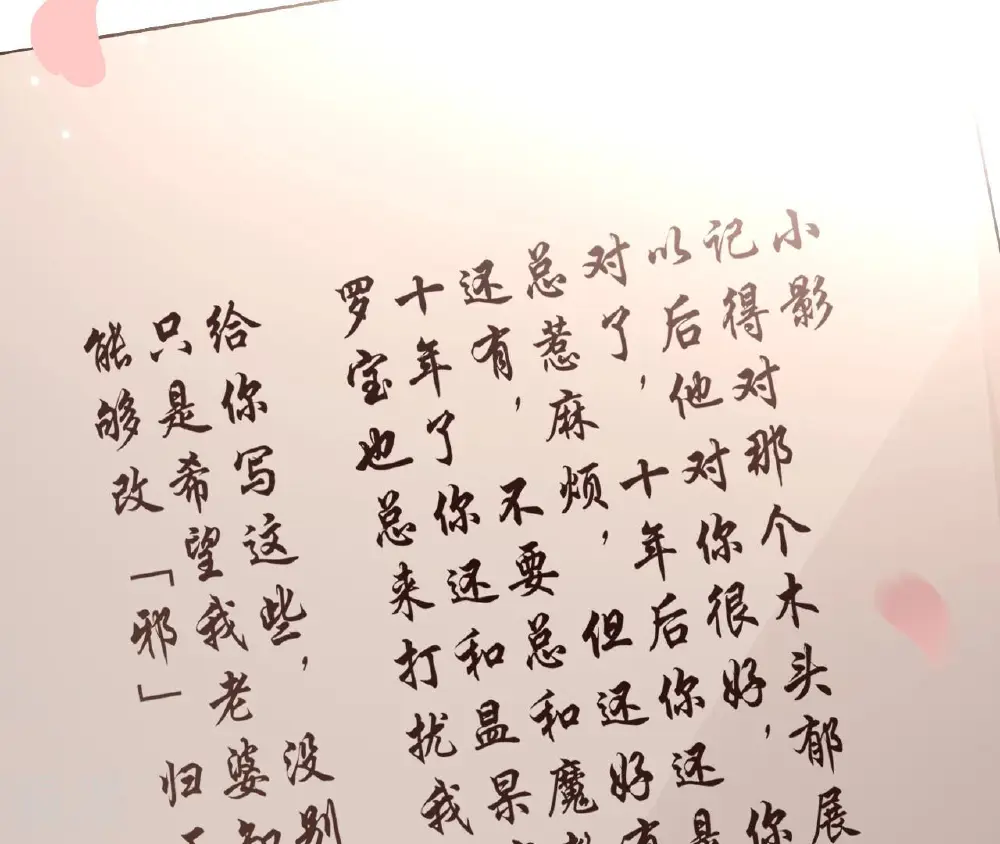 小影
记得对那个木头郁展
以后他对你很好，你
对了，十年后你还是
总惹麻烦，但还好有
还有，不要总和魔教
十年了你还和昷果
罗宝也总来打扰我
给你写这些，没别
只是希望我老婆
能够改「邪」归